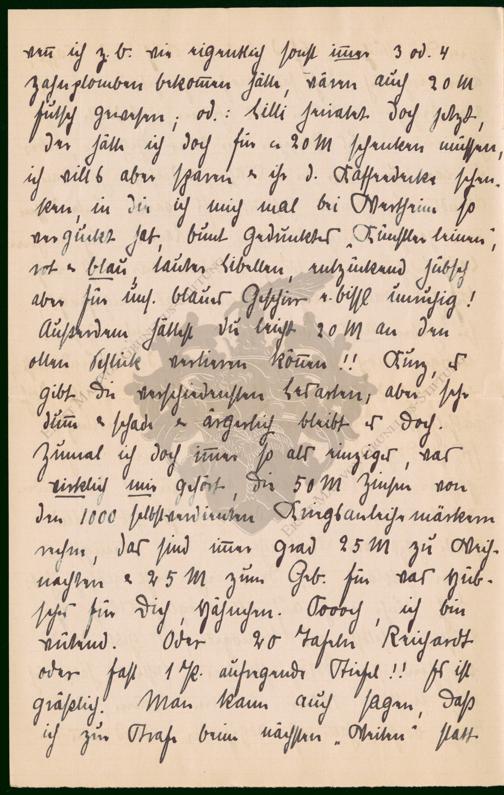 wenn ich z. b. wie eigentlich sonst immer 3 od. 4
Zahnplomben bekommen hätte, wären auch 20 M
futsch gewesen; od.: Lilli heiratet doch jetzt,
der hätte ich doch für 20 M schenken müssen,
ich will's aber sparen & ihr d. Kaffeedecke schen-
ken, in die ich mich mal bei Wertheim so
verguckt hab, bunt gedrucktes „Künstlerleinen",
rot & blau, lauter Libellen, entzückend hübsch
aber für uns. blaues Geschirr e. bissl unruhig!
Außerdem hättest du leicht 20 M an den
ollen verlieren können!! Kurz, es
gibt die verschiedensten Lesarten, aber sehr
dumm & schade & ärgerlich bleibt es doch.
Zumal ich doch immer so als einziges, was
wirklich mir gehört, die 50 M Zinsen von
den 1000 selbstverdienten Kriegsanleihemärkern
rechne, das sind immer grad 25 M zu Weih-
nachten & 25 M zum Geb. für was Hüb-
sches für Dich, Hähnchen. Poooch, ich bin
wütend. Oder 20 Tafeln Reichardt
oder fast 1 P. aufregende Stiefel!! Es ist
gräßlich. Man kann auch sagen, daß
ich zur Strafe beim nächsten „Weiten" statt